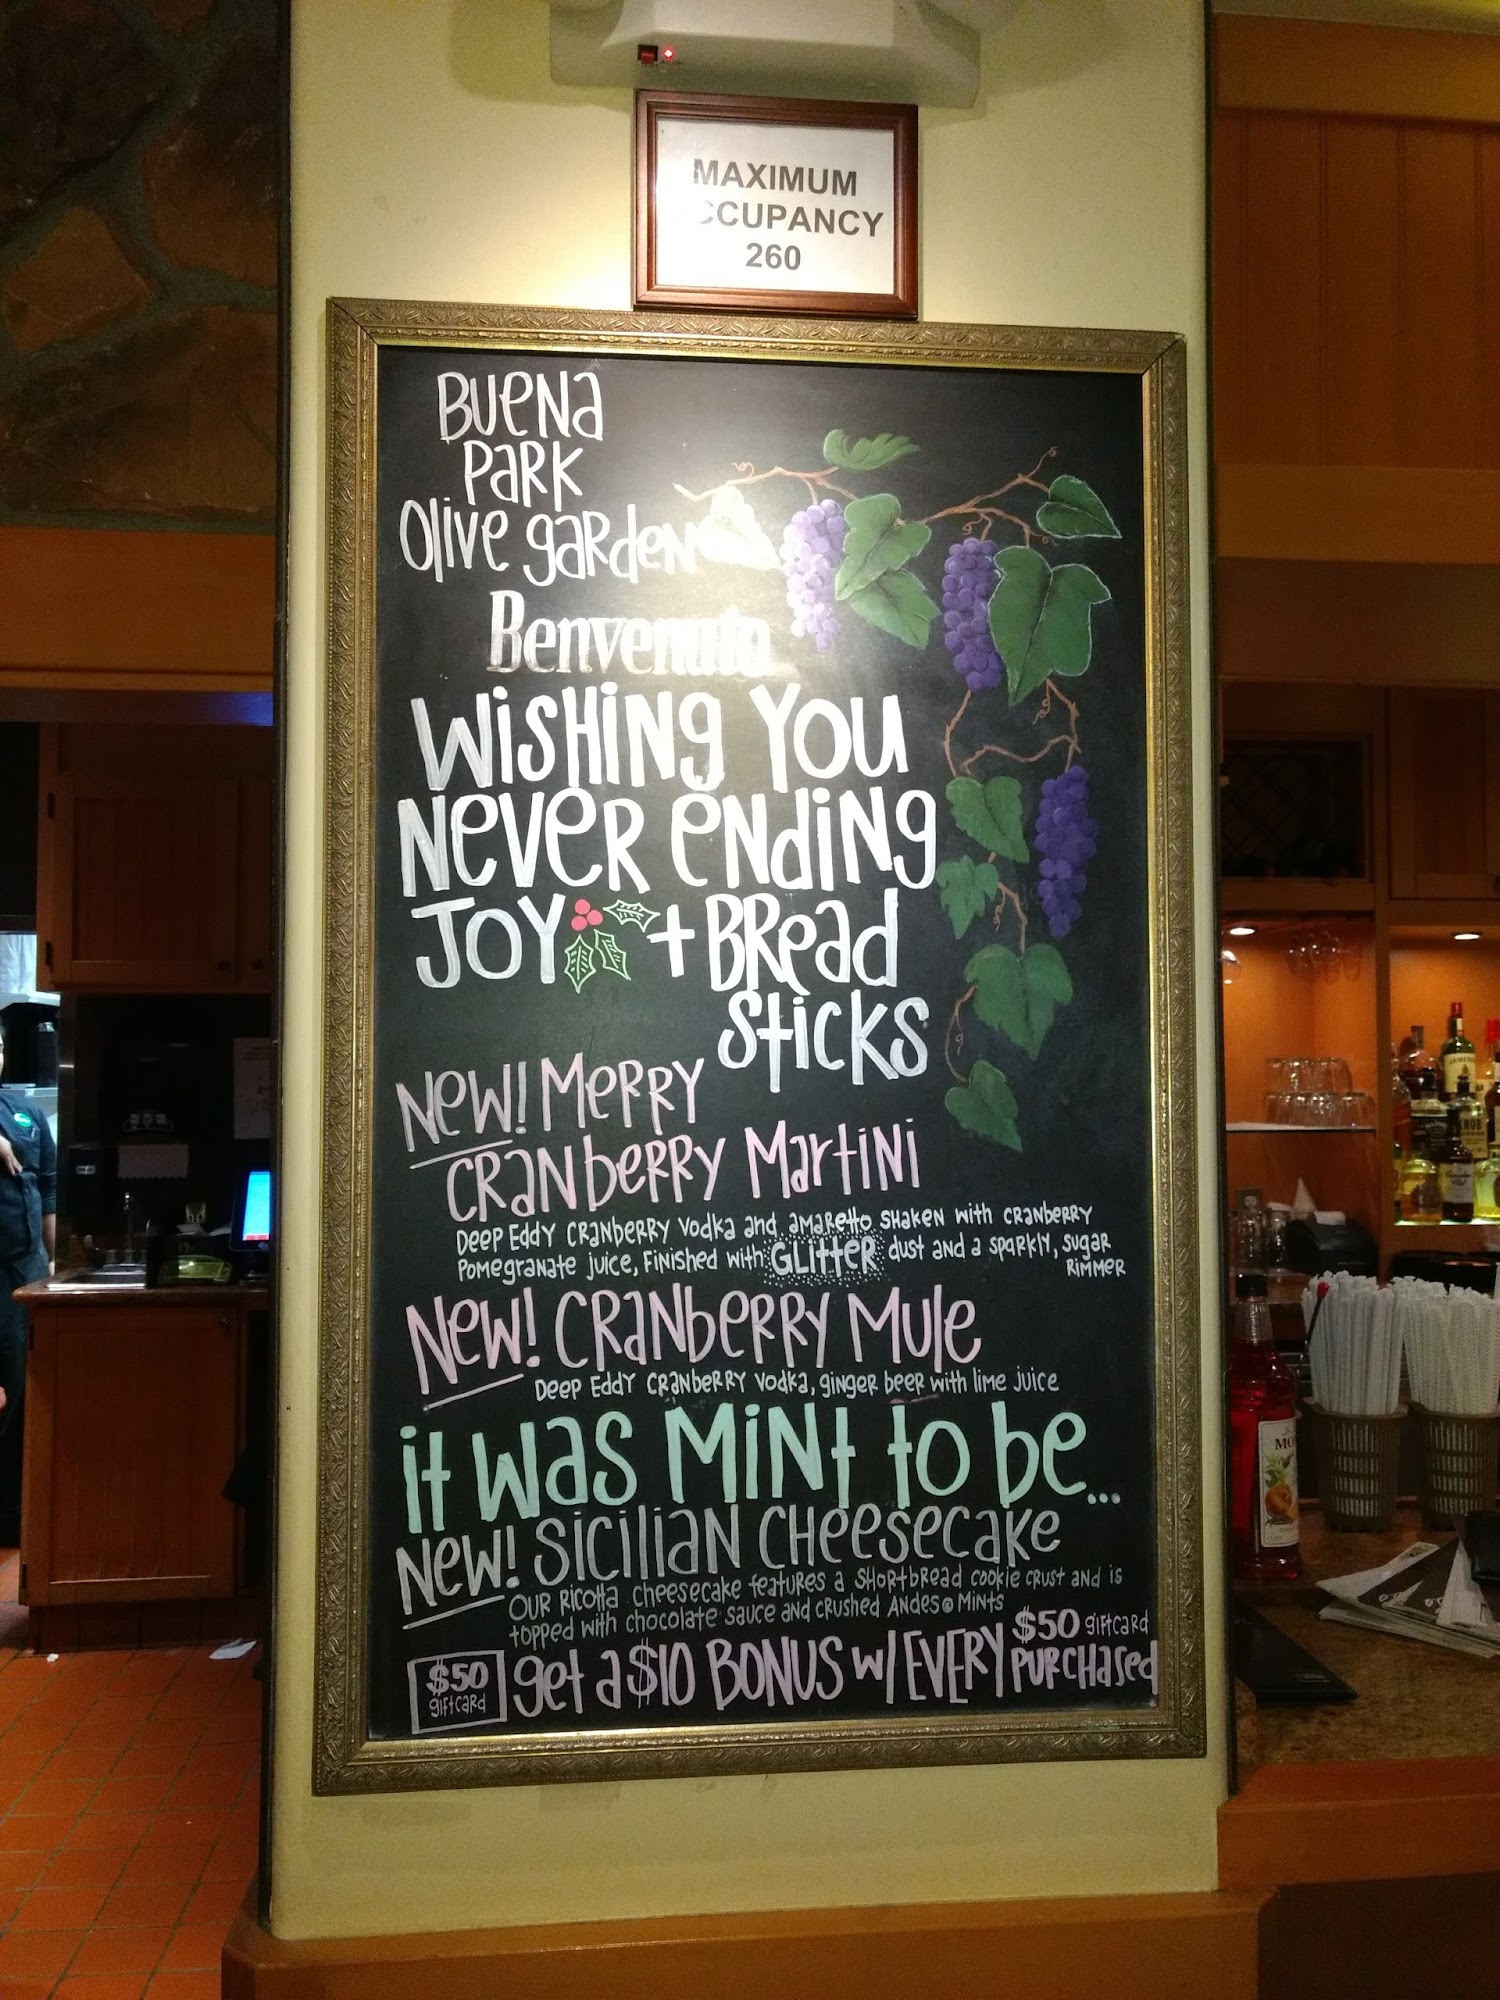 MAXIMUM
OCCUPANCY
260
BUENA
PARK
Olive garden
Benvenuto
WISHING YOU
NEVER ENDING
JOY + BREAD
STICKS
NEW! MERRY
CRANBERRY MARTINI
DEEP EDDY CRANBERRY VODKA AND AMARETTO SHAKEN WITH CRANBERRY
POMEGRANATE JUICE, FINISHED WITH GLITTER DUST AND A SPARKLY, SUGAR
RIMMER
NEW! CRANBERRY MULE
DEEP EDDY CRANBERRY VODKA, GINGER BEER WITH LIME JUICE
IT WAS MINT TO BE...
NEW! SICILIAN CHEESECAKE
OUR RICOTTA CHEESECAKE FEATURES A SHORTBREAD COOKIE CRUST AND IS
TOPPED WITH CHOCOLATE SAUCE AND CRUSHED ANDES® MINTS
$50
giftcard
get a $10 BONUS w/ EVERY $50 giftcard
PURCHASED